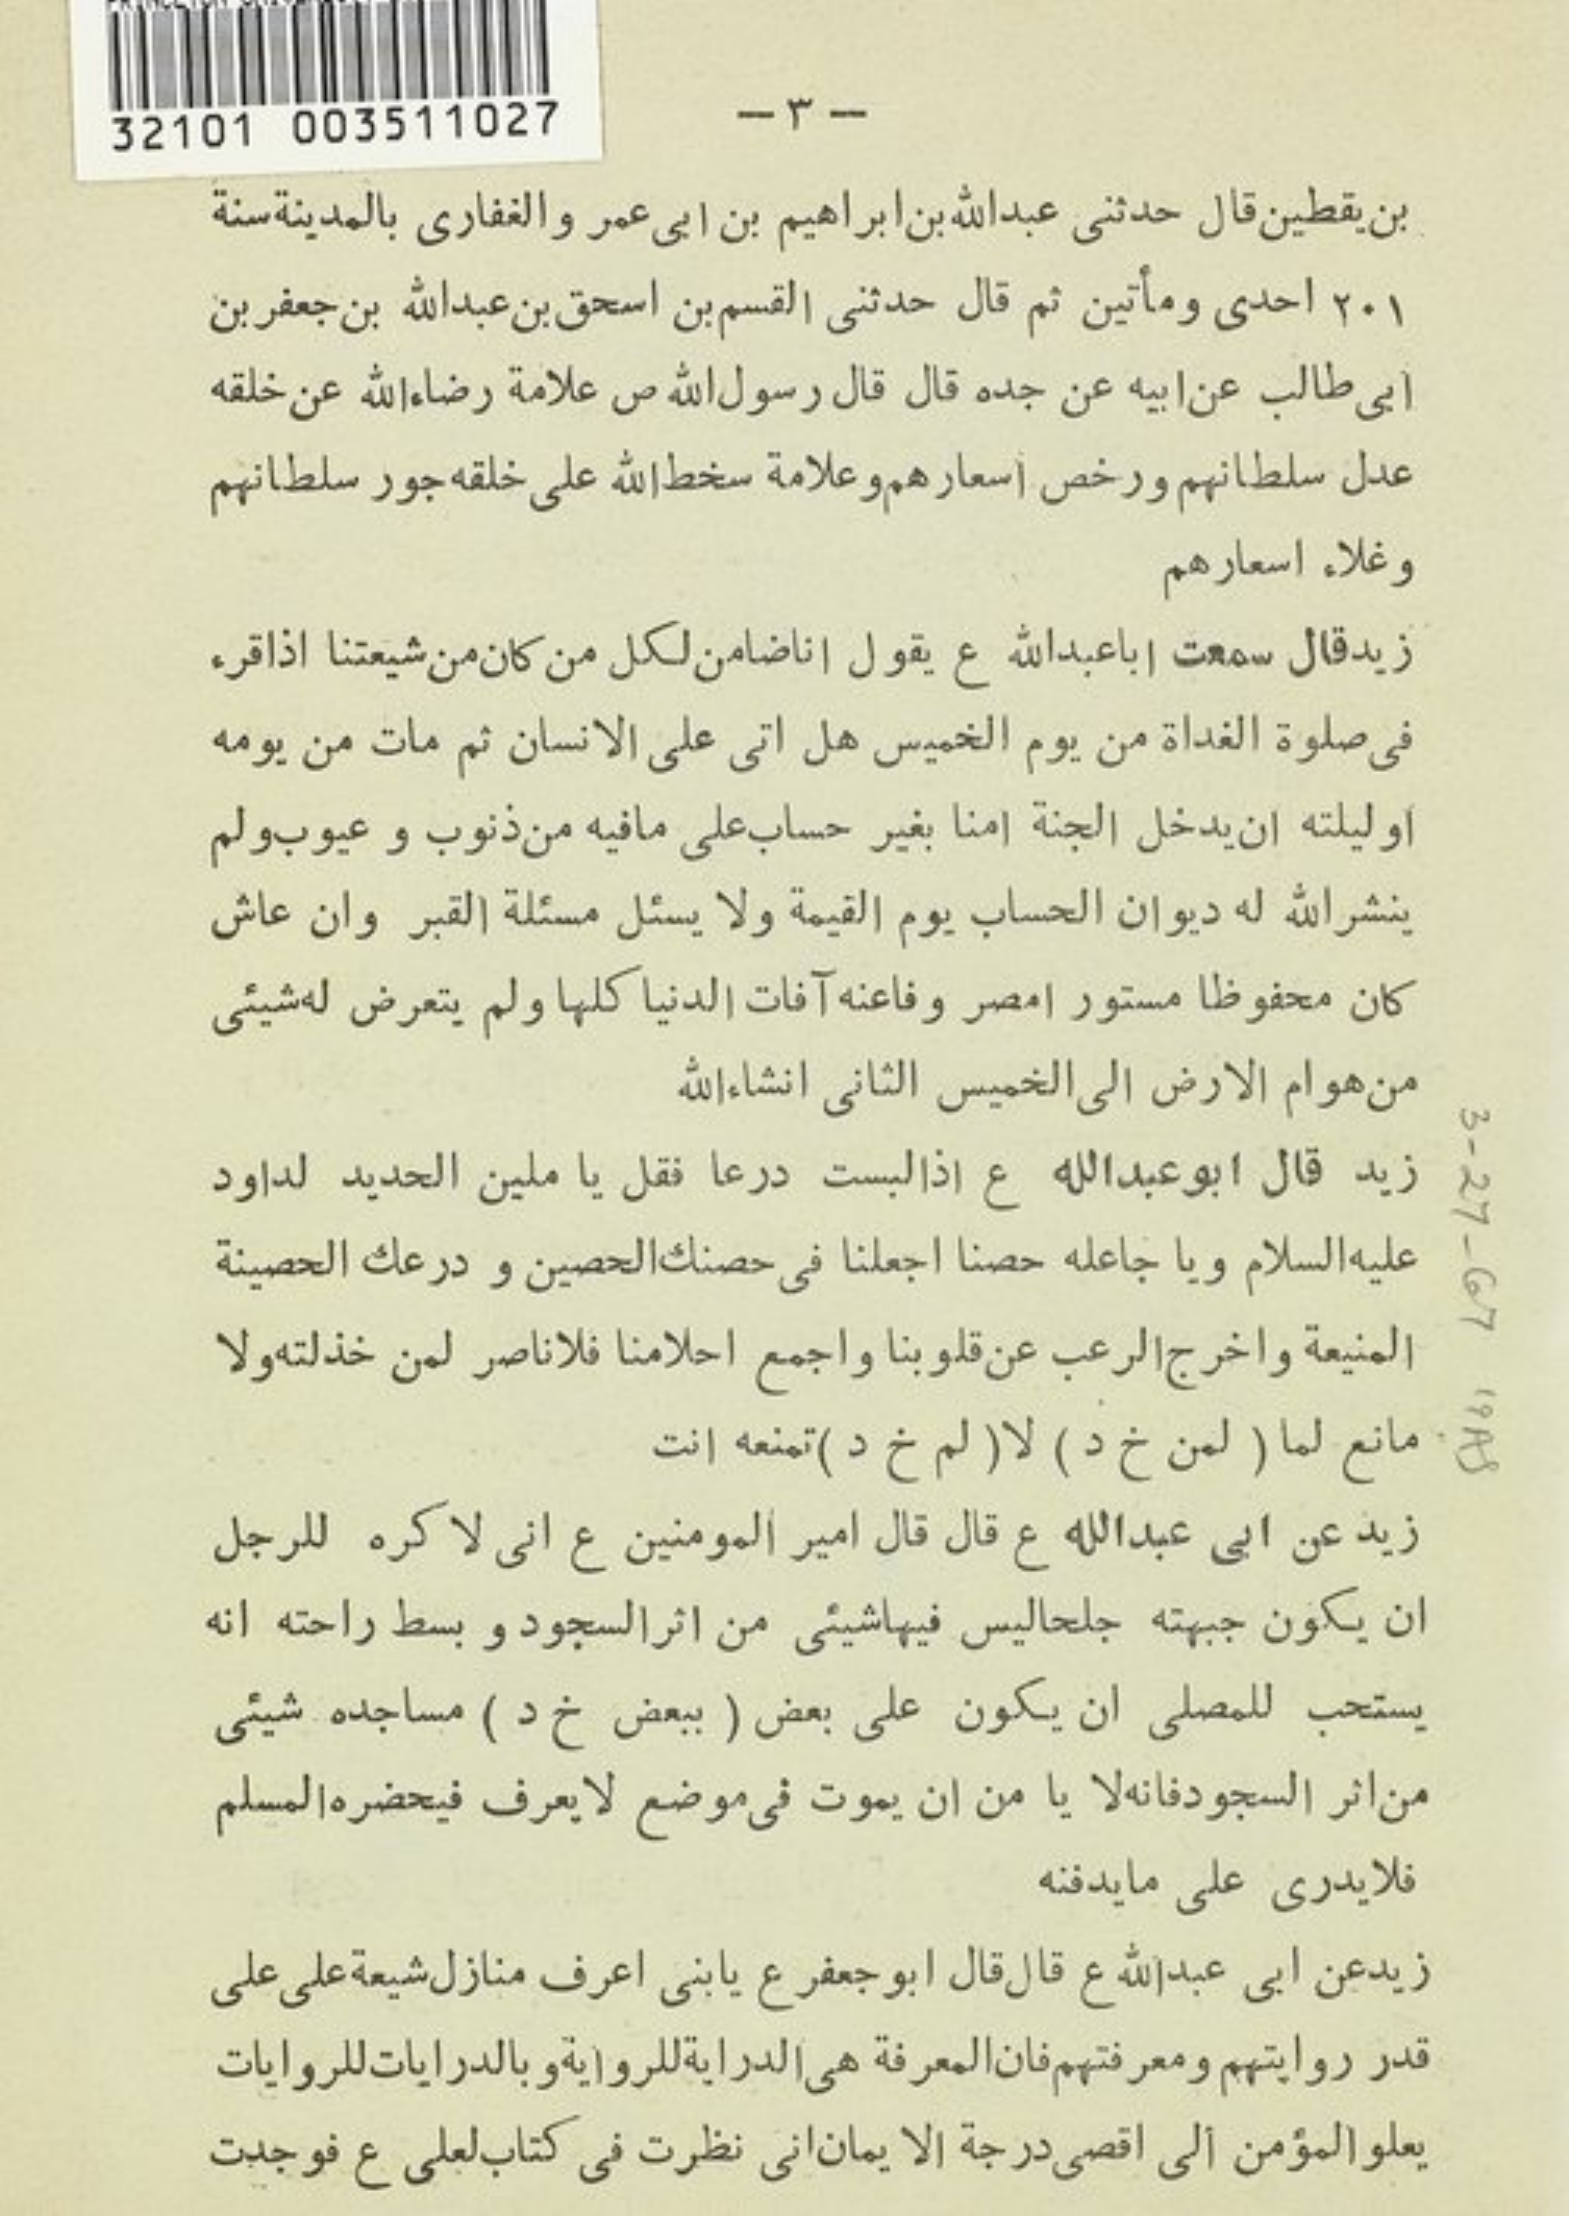 32101 003511027
— ٣ —
بن يقطين قال حدثنى عبدالله بن ابراهيم بن ابى عمر و الغفارى بالمدينة سنة
٢٠١ احدى ومأتين ثم قال حدثنى القسم بن اسحق بن عبدالله بن جعفر بن
ابى طالب عن ابيه عن جده قال قال رسول الله ص علامة رضاءالله عن خلقه
عدل سلطانهم ورخص اسعارهم وعلامة سخط الله على خلقه جور سلطانهم
وغلاء اسعارهم
زيد قال سمعت اباعبدالله ع يقول اناضامن لكل من كان من شيعتنا اذاقرء
فى صلوة الغداة من يوم الخميس هل اتى على الانسان ثم مات من يومه
او ليلته ان يدخل الجنة امنا بغير حساب على مافيه من ذنوب و عيوب ولم
ينشر الله له ديوان الحساب يوم القيمة ولا يسئل مسئلة القبر وان عاش
كان محفوظا مستور امصر وفاعنه آفات الدنيا كلها ولم يتعرض له شيئى
من هوام الارض الى الخميس الثانى انشاءالله
زيد قال ابوعبدالله ع اذالبست درعا فقل يا ملين الحديد لداود
عليه السلام ويا جاعله حصنا اجعلنا فى حصنك الحصين و درعك الحصينة
المنيعة واخرج الرعب عن قلوبنا واجمع احلامنا فلاناصر لمن خذلته ولا
مانع لما ( لمن خ د ) لا ( لم خ د ) تمنعه انت
زيد عن ابى عبدالله ع قال قال امير المومنين ع انى لاكره للرجل
ان يكون جبهته جلحاليس فيهاشيئى من اثر السجود و بسط راحته انه
يستحب للمصلى ان يكون على بعض ( ببعض خ د ) مساجده شيئى
من اثر السجود فانه لا يا من ان يموت فى موضع لايعرف فيحضره المسلم
فلايدرى على مايدفنه
زيدعن ابى عبدالله ع قال قال ابو جعفر ع يابنى اعرف منازل شيعة على على
قدر روايتهم ومعرفتهم فان المعرفة هى الدراية للرواية وبالدرايات للروايات
يعلو المؤمن الى اقصى درجة الايمان انى نظرت فى كتاب لعلى ع فوجدت
3-27-67